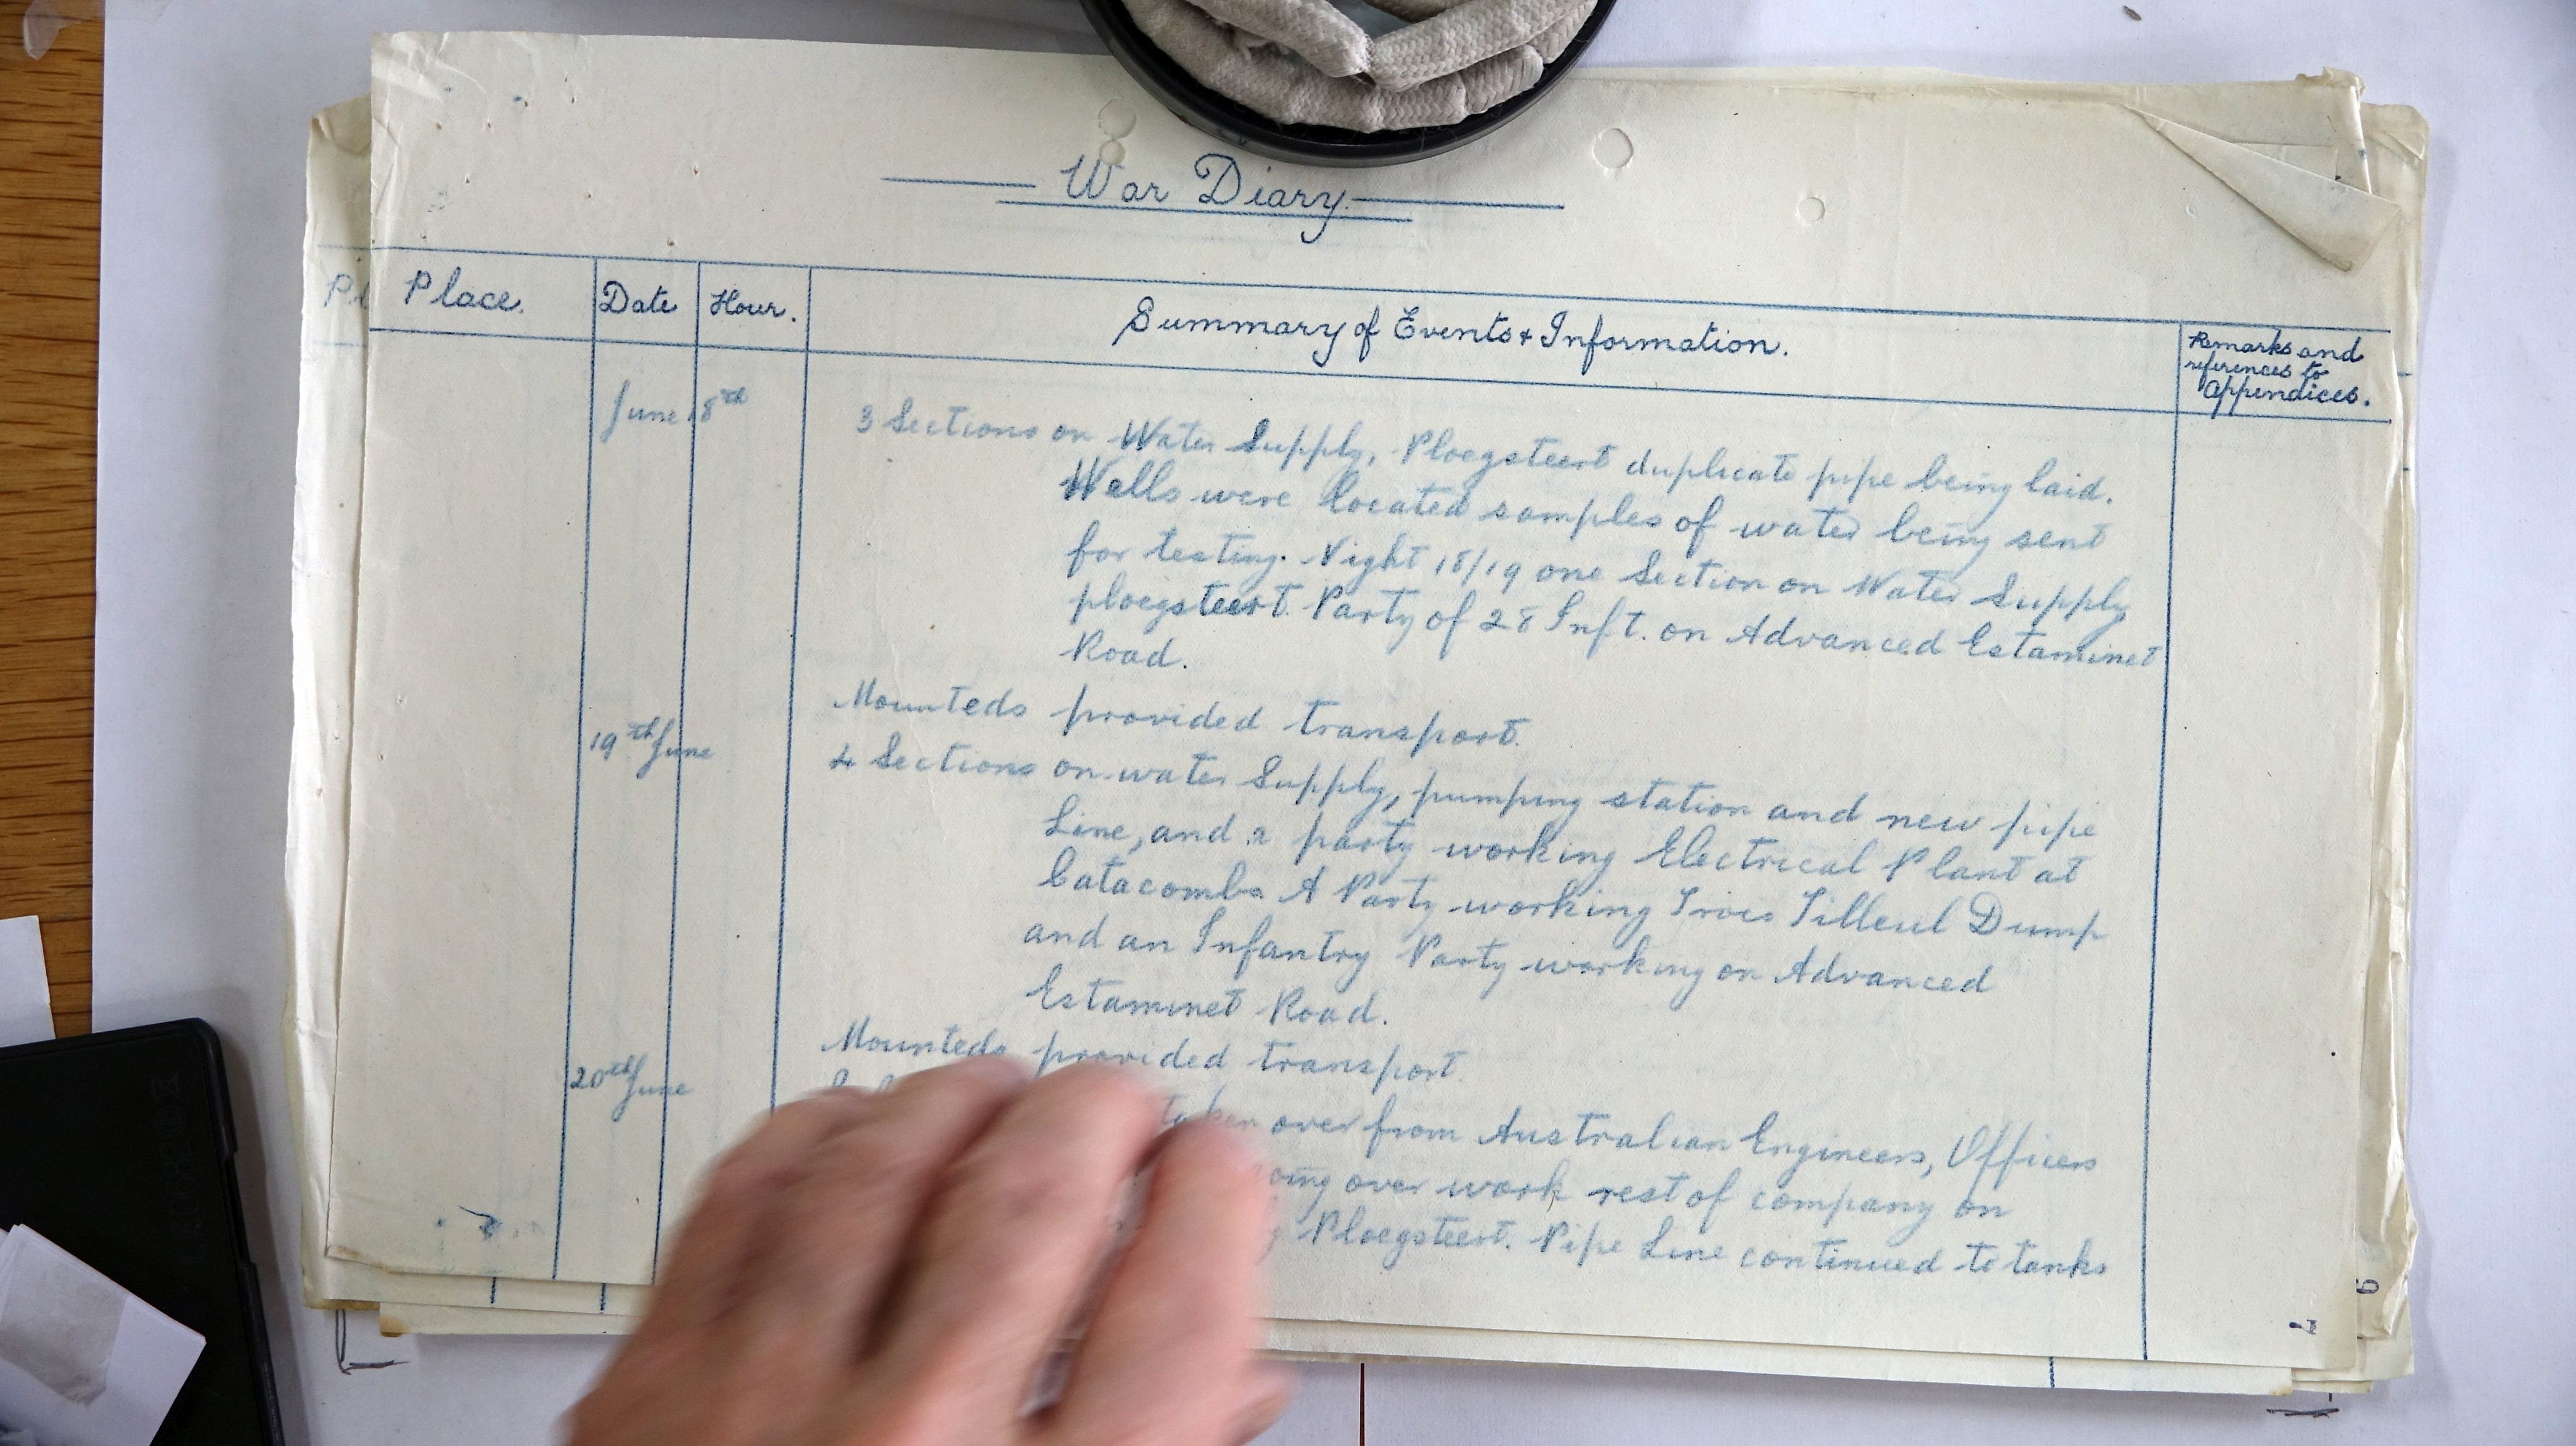 War Diary.
Place. Date Hour. Summary of Events & Information. Remarks and references to Appendices.
June 18th 3 Sections on Water Supply, Ploegsteert duplicate pipe being laid.
Wells were located samples of water being sent
for testing. Night 18/19 one Section on Water Supply
ploegsteert. Party of 28 Inft. on Advanced Estaminet
Road.
Mounteds provided transport.
19th June 4 Sections on water Supply, pumping station and new pipe
Line, and a party working Electrical Plant at
Catacombs A Party working Trois Tilleul Dump
and an Infantry Party working on Advanced
Estaminet Road.
Mounteds provided transport.
20th June taken over from Australian Engineers, Officers
over work rest of company on
Ploegsteert. Pipe Line continued to tanks
7